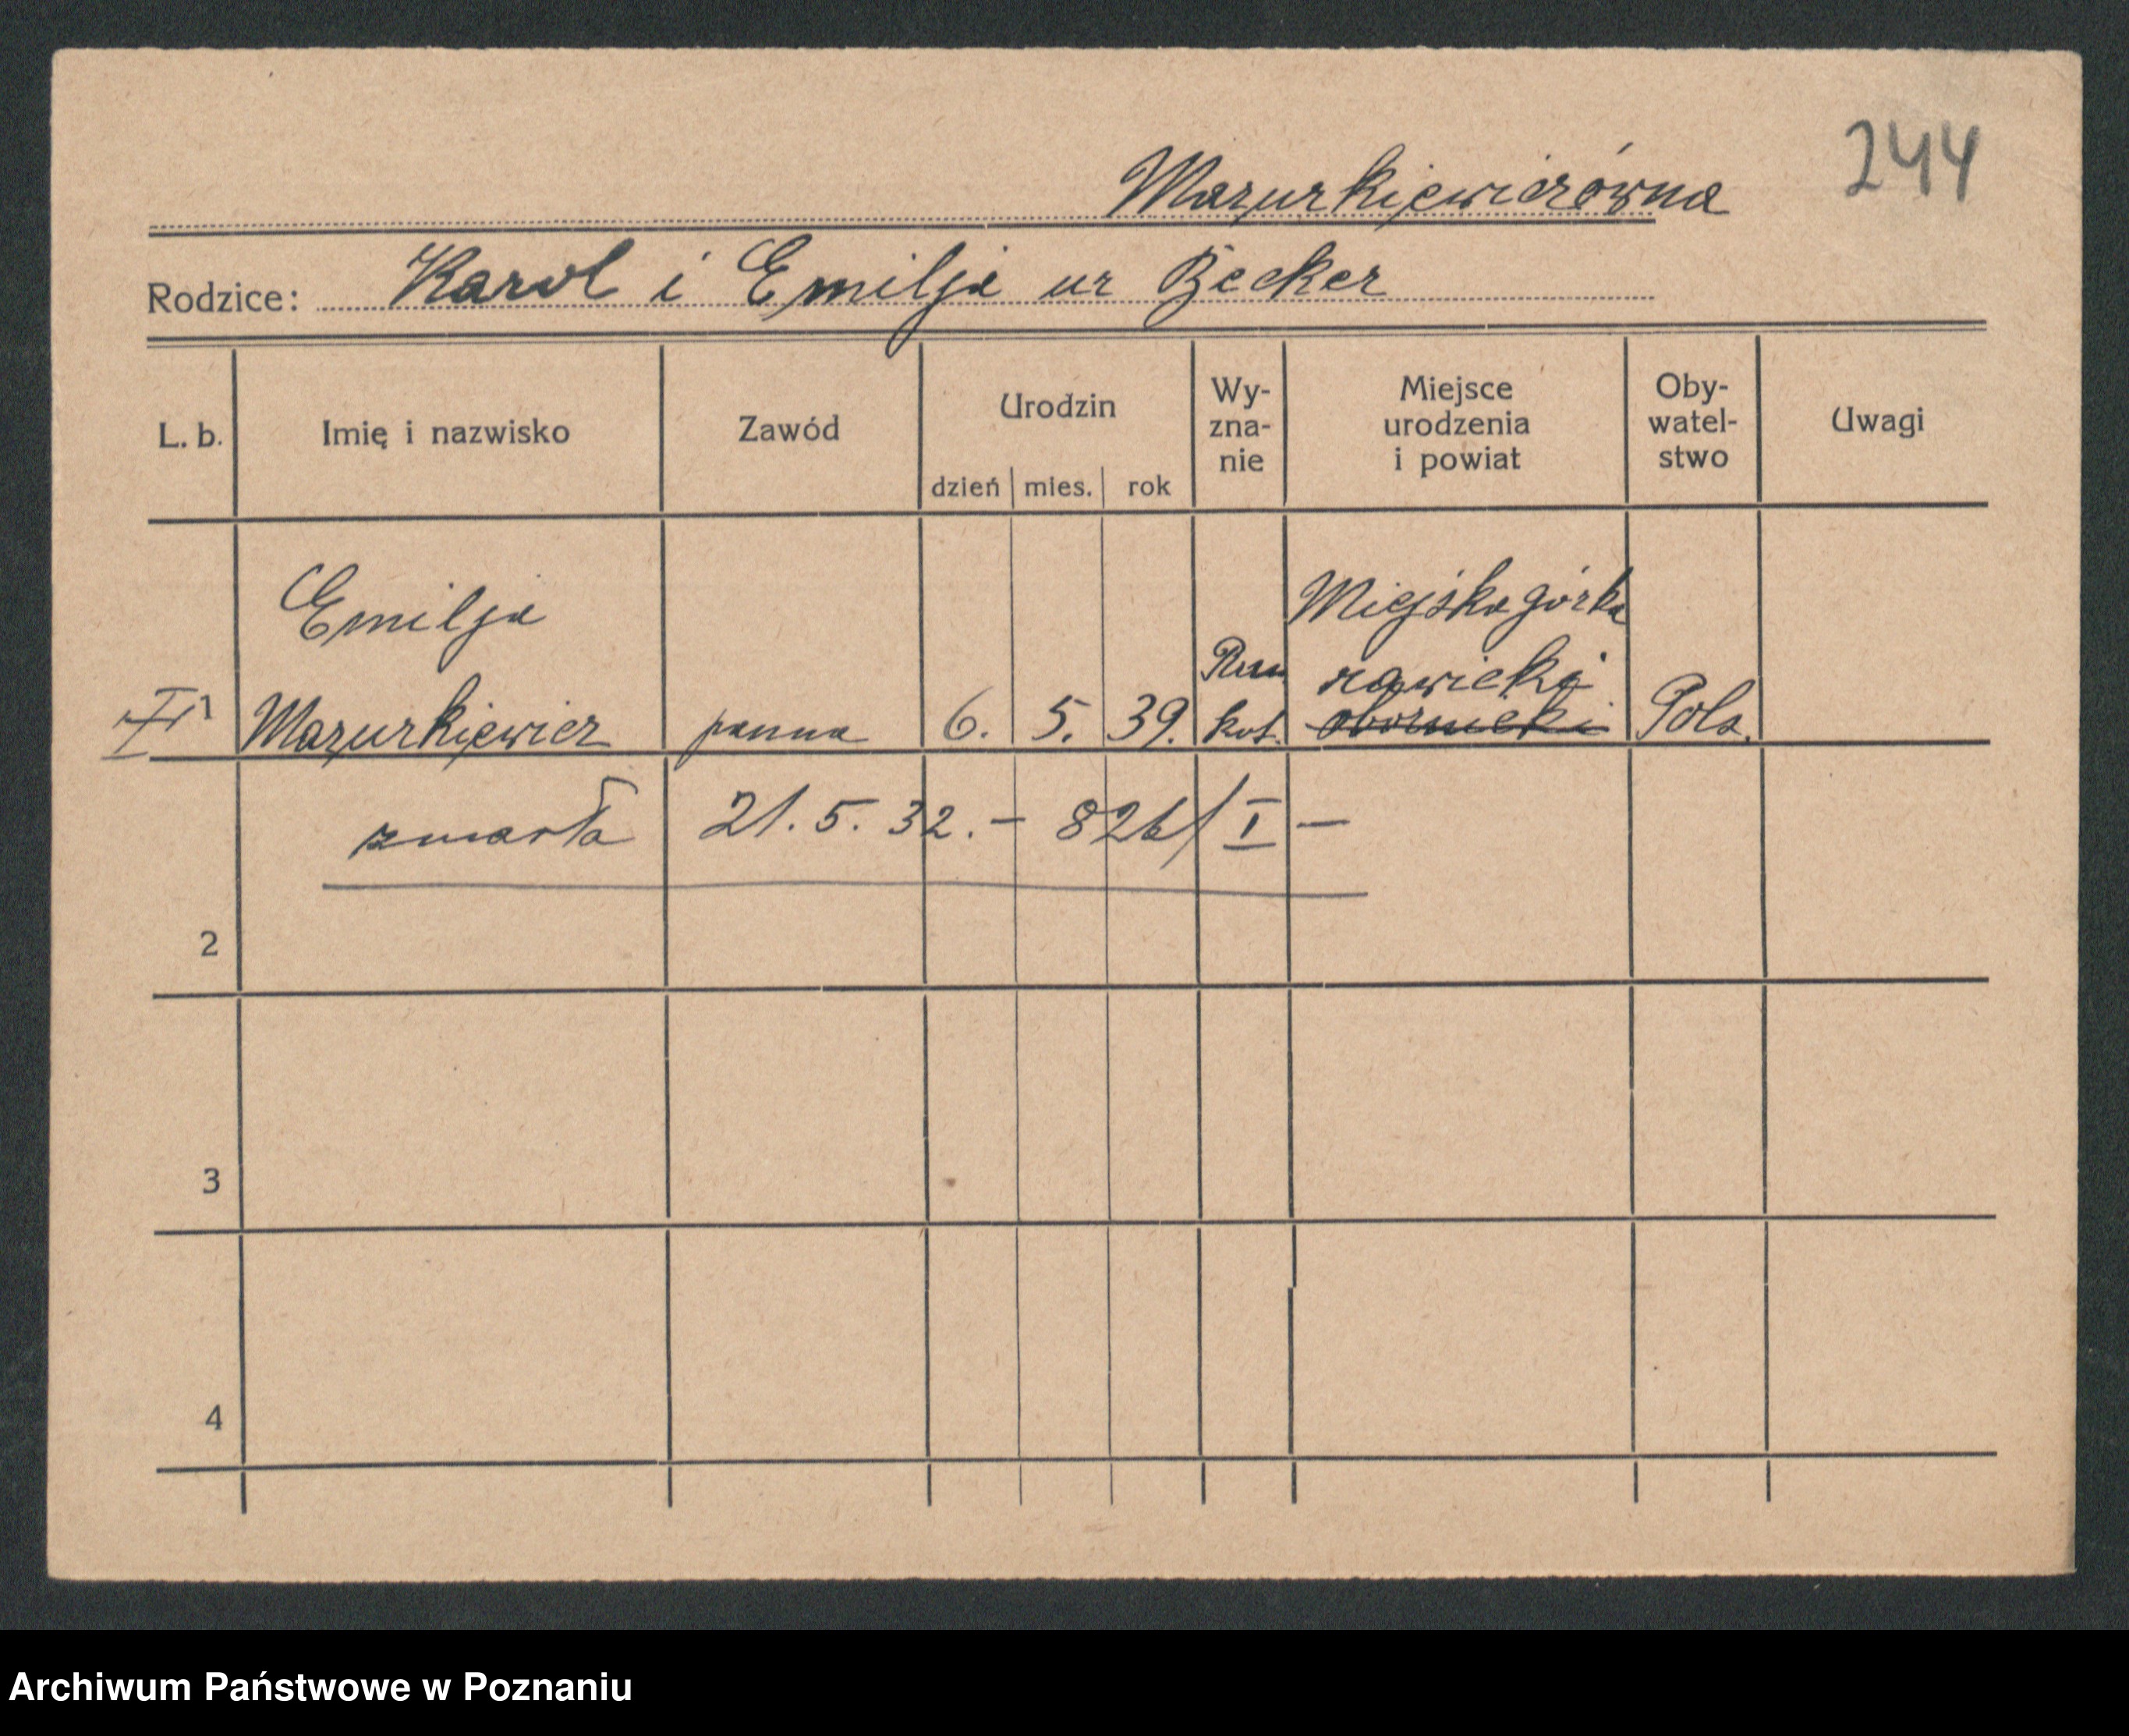 244
Mazurkiewiczówna
Rodzice: Karol i Emilja ur Becker
L. b. Imię i nazwisko Zawód Urodzin dzień mies. rok Wy-zna-nie Miejsce urodzenia i powiat Oby-watel-stwo Uwagi
Emilja Miejska górka
Rzm rawicki
1 Mazurkiewicz panna 6. 5. 39. kat. obornicki Pols.
zmarła 21. 5. 32. — 826/I —
2
3
4
Archiwum Państwowe w Poznaniu